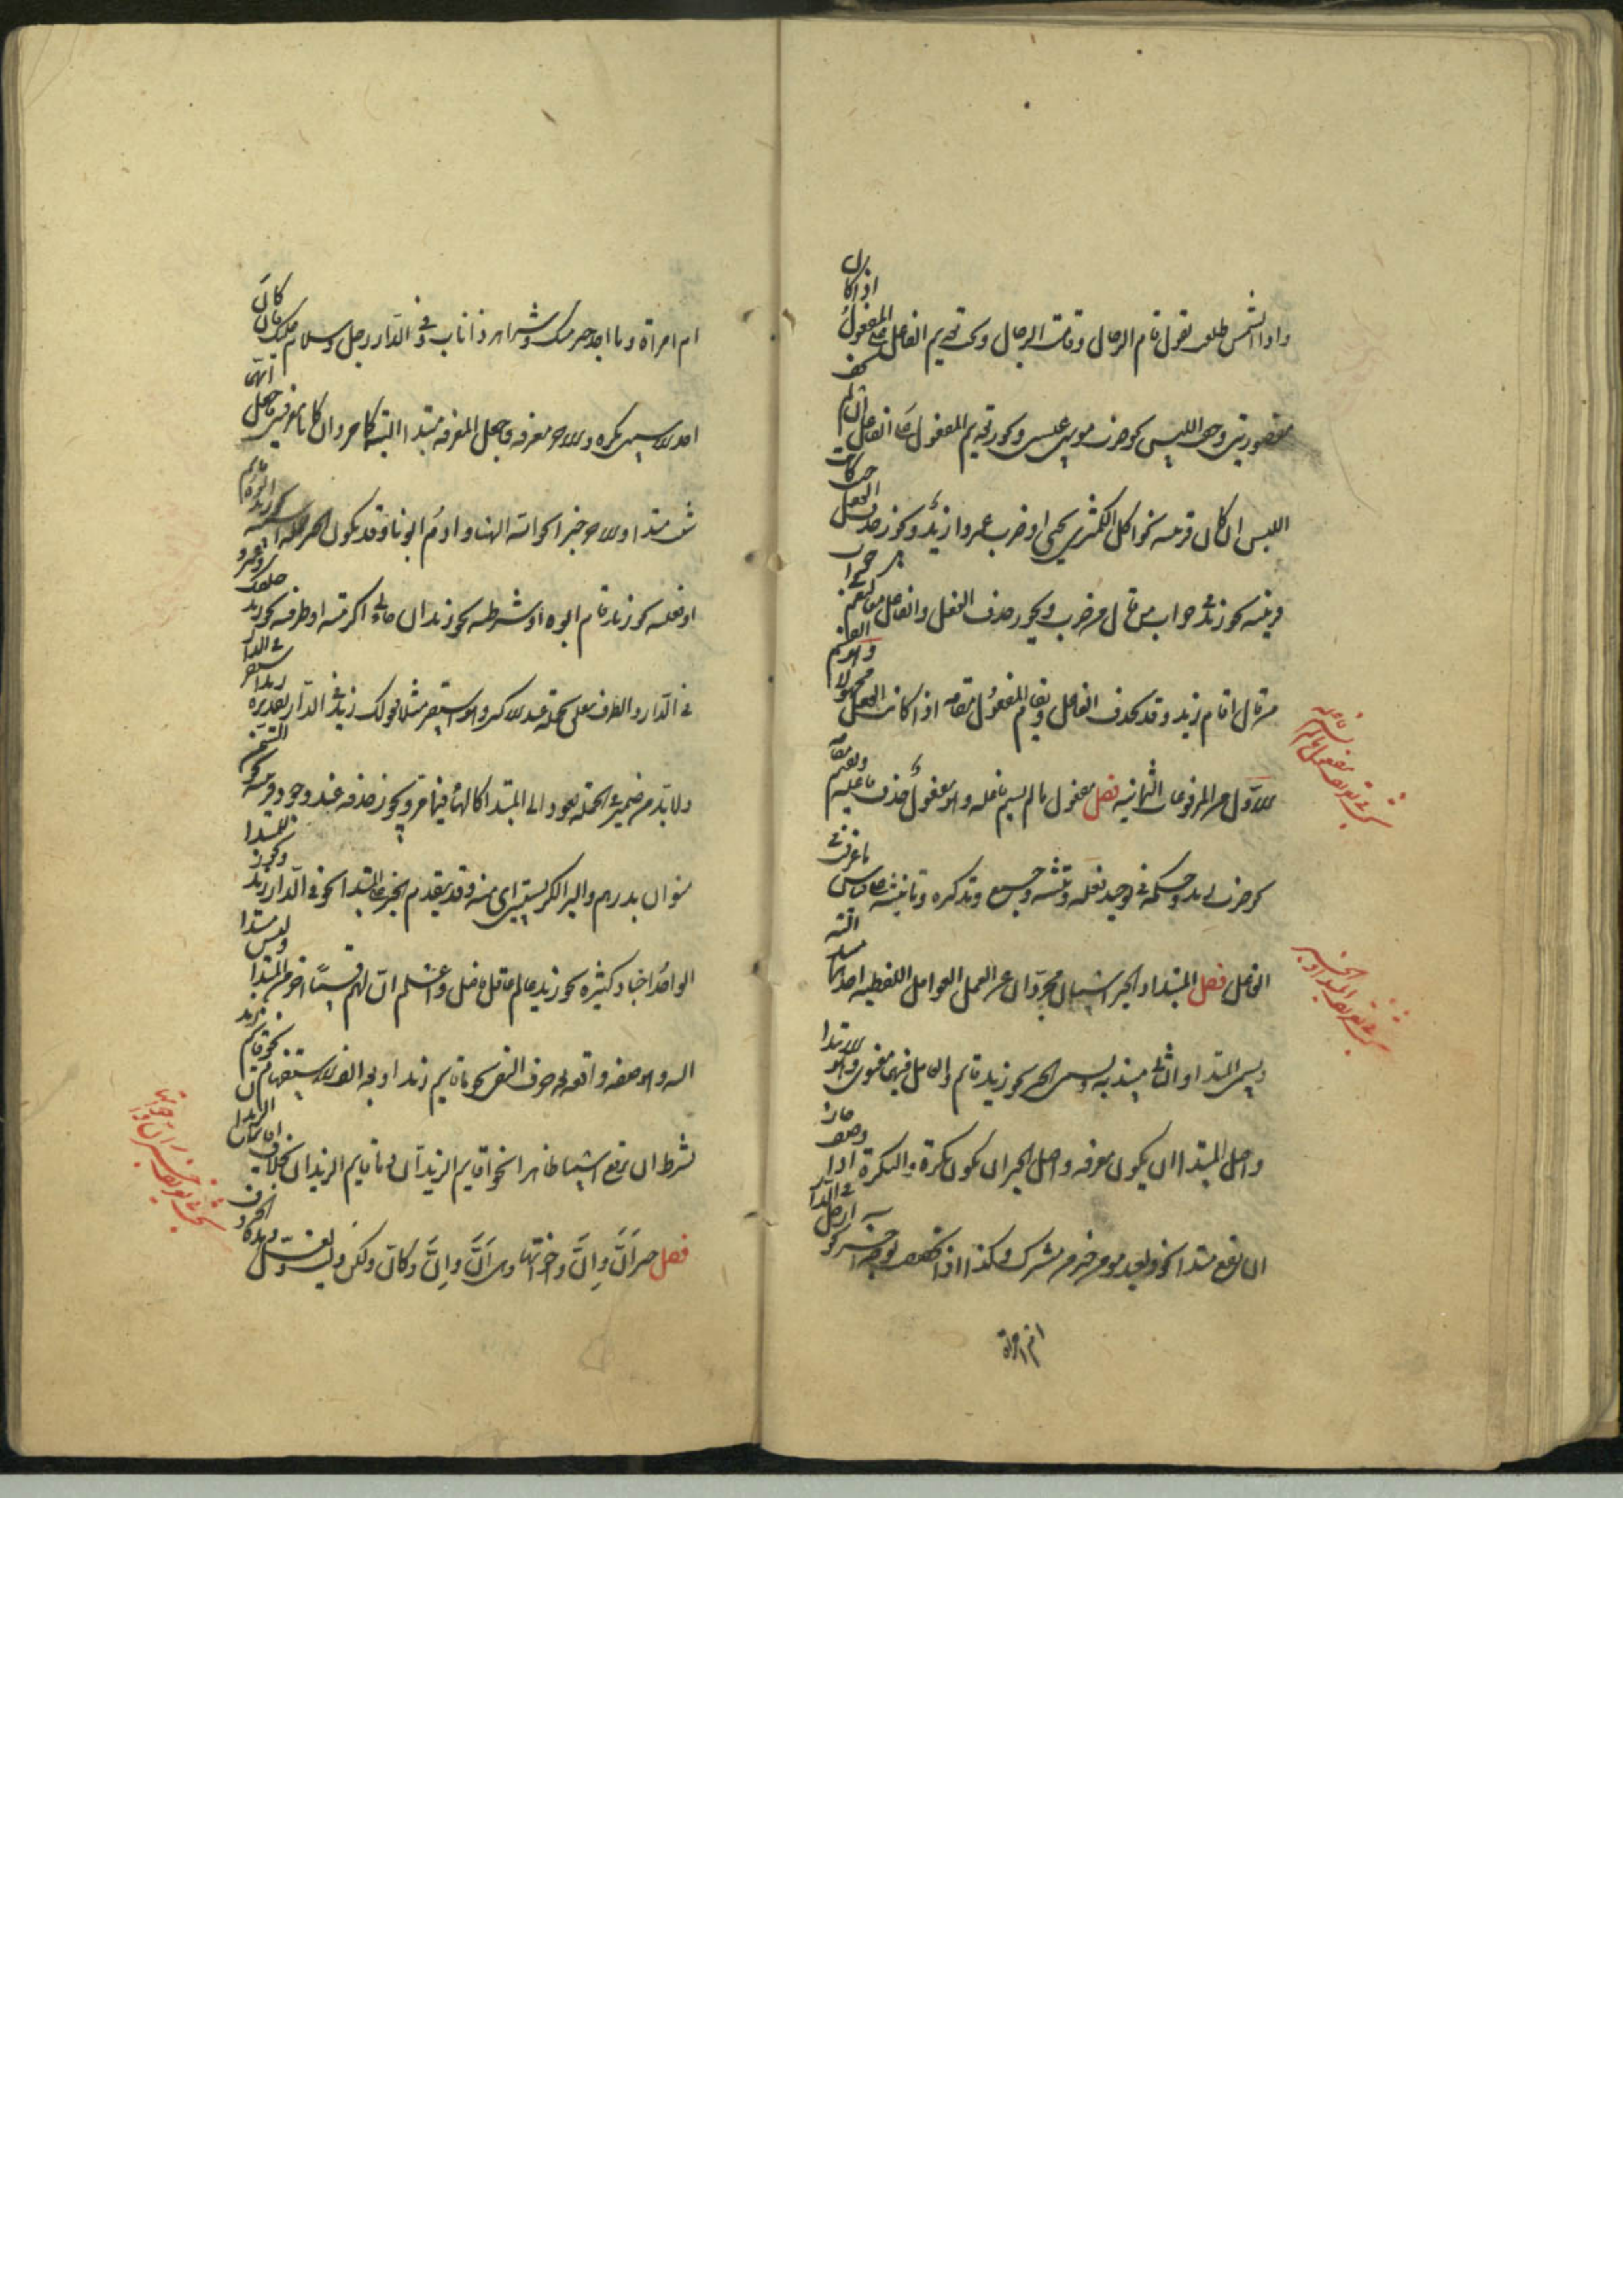 واذا الشمس طلعت تقول قام الرجال وقامت الرجال ويجب تقديم الفاعل على المفعول اذا كانا
مقصورين وخفت اللبس نحو ضرب موسى عيسى ويجوز تقديم المفعول على الفاعل ان لم تخف
اللبس ان كان قرينة نحو اكل الكمثرى يحيى او ضرب عمروا زيد ويجوز حذف الفعل حيث كانت
قرينة نحو زيد فى جواب من قال من ضرب ويجوز حذف الفعل والفاعل معا كنعم فى جواب
من قال اقام زيد وقد يحذف الفاعل ويقام المفعول مقامه اذا كان الفعل مجهولا وهو القسم
الاول من المرفوعات الثانية فصل مفعول ما لم يسم فاعله وهو مفعول حذف فاعله واقيم مقامه
نحو ضرب زيد وحكمه فى توحيد فعله وتثنيته وجمعه وتذكيره وتانيثه على قياس ما عرفت فى
الفاعل فصل المبتدا والخبر اسمان مجردان عن العوامل اللفظية احدهما مسند اليه
ويسمى المبتدا والثانى مسند به ويسمى الخبر نحو زيد قائم والعامل فيهما معنوى وهو الابتدا
واصل المبتدا ان يكون معرفة واصل الخبر ان يكون نكرة والنكرة اذا وصفت جاز
ان تقع مبتدا نحو ولعبد مومن خير من مشرك وكذا اذا تخصصت بوجه اخر نحو ارجل فى الدار
ام امراة
ام امراة وما احد خير منك وشر اهر ذا ناب وفى الدار رجل وسلام عليك وان كان
احد الاسمين نكرة والاخر معرفة فاجعل المعرفة مبتدا البتة كما مر وان كانا معرفتين فاجعل ايهما
شئت مبتدا والاخر خبرا نحو الله الهنا وادم ابونا وقد يكون الخبر جملة اسمية نحو زيد ابوه قائم
او فعلية نحو زيد قام ابوه او شرطية نحو زيد ان جاءنى اكرمته او ظرفية نحو زيد خلفك وعمرو
فى الدار والظرف متعلق بجملة عند الاكثر وهو استقر مثلا تقولك زيد فى الدار تقديره زيد استقر فى الدار
ولا بد من ضمير فى الجملة يعود الى المبتدا كالهاء فيما مر ويجوز حذفه عند وجود قرينة نحو السمن
منوان بدرهم والبر الكر بستين اى منه وقد يتقدم الخبر على المبتدا نحو فى الدار زيد ويجوز للمبتدا
الواحد اخبار كثيرة نحو زيد عالم عاقل فاضل واعلم ان لهم قسما اخر من المبتدا وليس مسندا
اليه وهو صفة واقعة بعد حرف النفى نحو ما قايم زيد او بعد الف الاستفهام نحو اقائم زيد
بشرط ان ترفع اسما ظاهرا نحو اقايم الزيدان وما قايم الزيدان بخلاف اقايمان الزيدان
فصل خبر ان وان واخواتها وهى ان وان وكان ولكن وليت ولعل وهذه الحروف